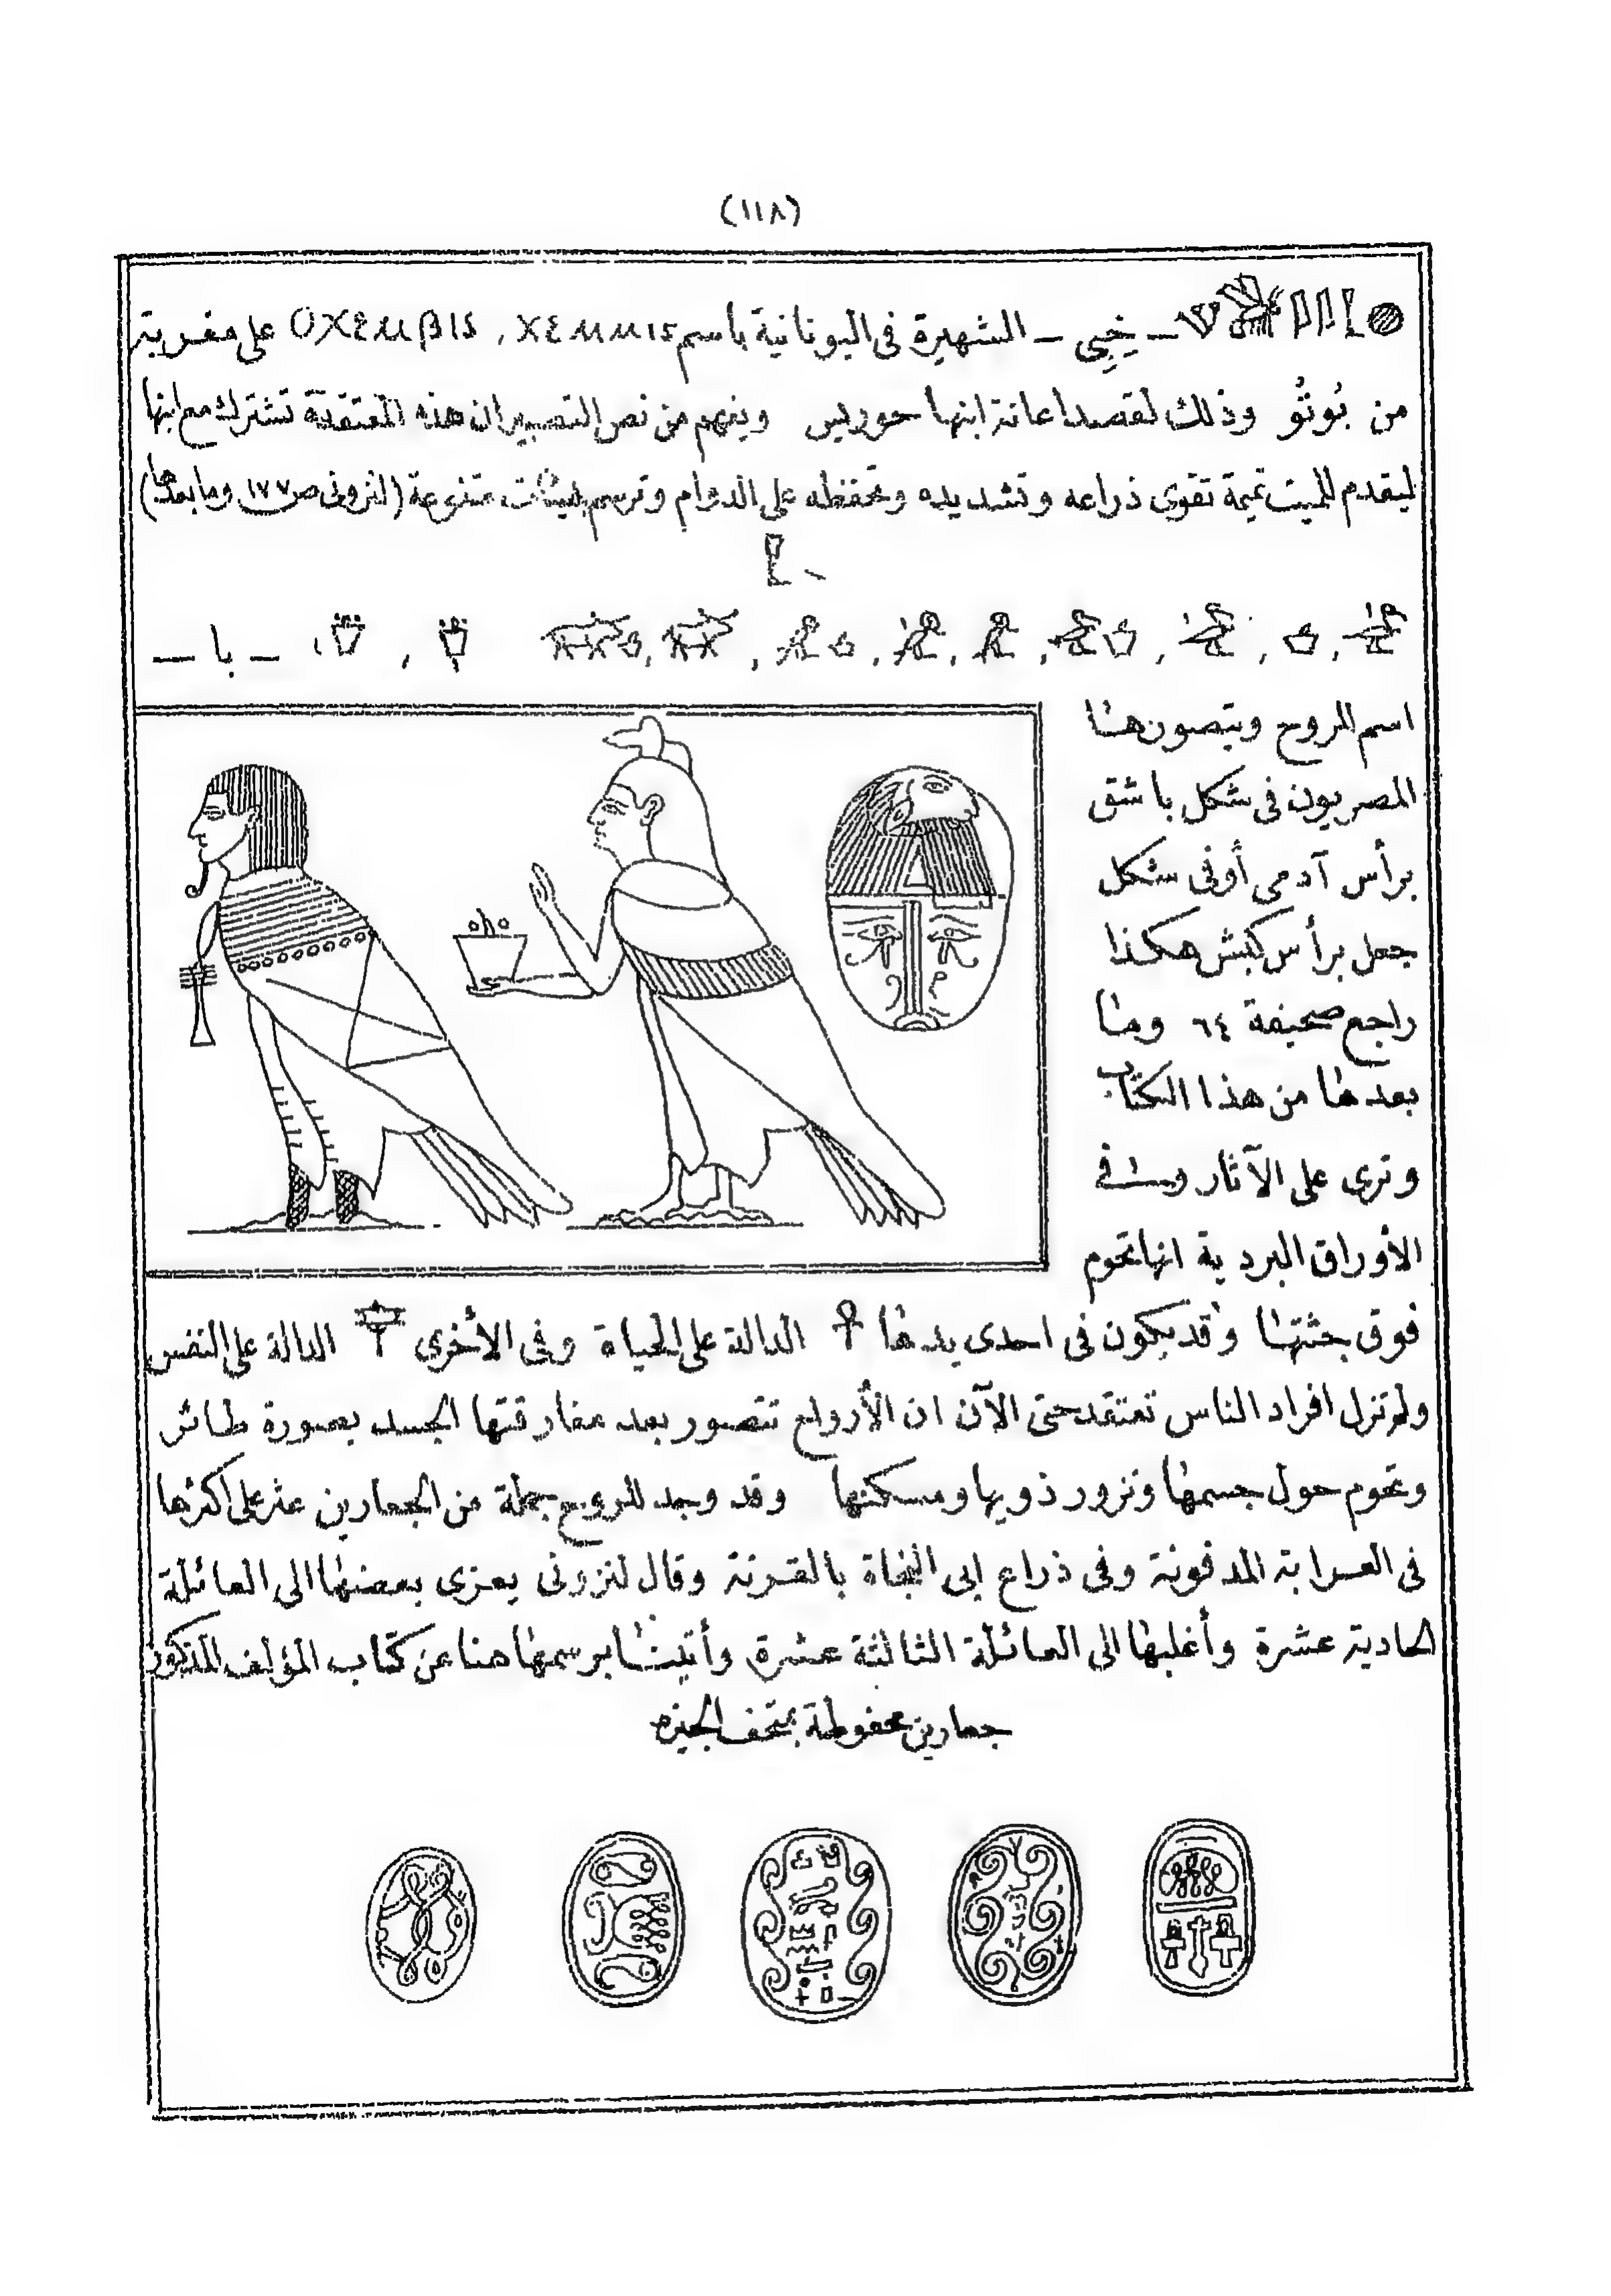 (١١٨)
ـ خِبِى ـ الشهيرة فى اليونانية باسم ΧΕΜΜΙS , ΟΧΕΜΒΙS على مقربة
من بُوتُو وذلك لقصد اعانة ابنها حوريس ويفهم من نص التصبير ان هذه المعتقدة تشترك مع ابنها
ليقدم للميت تميمة تقوى ذراعه وتشد يده وتحفظه على الدوام وترسم بهيئات متنوعة (لنزونى ص ١٧٧ وما بعدها)
ـ با ـ
اسم للروح ويتصورها
المصريون فى شكل باشق
برأس آدمى أو فى شكل
جعل برأس كبش هكذا
راجع صحيفة ٦٤ وما
بعدها من هذا الكتاب
وترى على الآثار وفى
الأوراق البردية انها تحوم
فوق جثتها وقد يكون فى احدى يدها ☥ الدالة على الحياة وفى الأخرى الدالة على النفس
ولم تزل افراد الناس تعتقد حتى الآن ان الأرواح تتصور بعد مفارقتها الجسد بصورة طائر
وتحوم حول جسمها وتزور ذويها ومسكنها وقد وجد للروح جملة من الجعارين عثر على اكثرها
فى العرابة المدفونة وفى ذراع ابى النجاة بالقرنة وقال لنزونى يعزى بعضها الى العائلة
الحادية عشرة وأغلبها الى العائلة الثالثة عشرة وأتينا برسمها هنا عن كتاب المؤلف المذكور
جعارين محفوظة بمتحف الجيزه